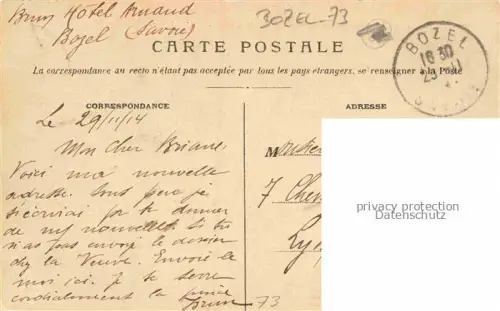 Brun Hôtel Arnaud
Bozel (Savoie)
BOZEL-73
CARTE POSTALE
La correspondance au recto n'étant pas acceptée par tous les pays étrangers, se renseigner à la Poste
BOZEL
16 30
CORRESPONDANCE
ADRESSE
Le 29/11/14
Mon Cher Briane,
Voici ma nouvelle
adresse. Sous peu je
t'écrirai pour te donner
de mes nouvelles. Si tu
n'as pas envoyé le dessin
chez la Veuve. Envoie le
moi ici. Je te serre
cordialement la
Brun
73
7
privacy protection
Datenschutz